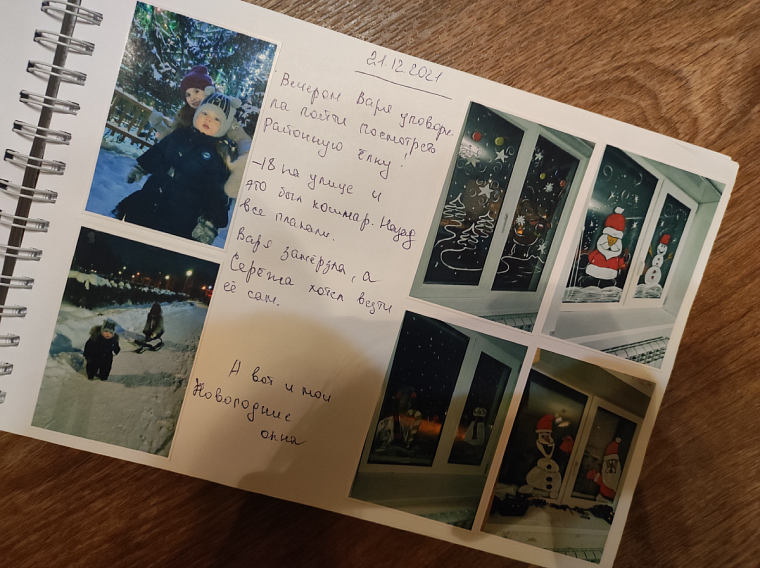 21.12.2021
Вечером Варя уговори-
ла пойти посмотреть
районную ёлку!
-18 на улице и
это был кошмар. Назад
все плакали.
Варя замёрзла, а
Серёжа хотел везти
её сам.
А вот и мои
Новогодние
окна